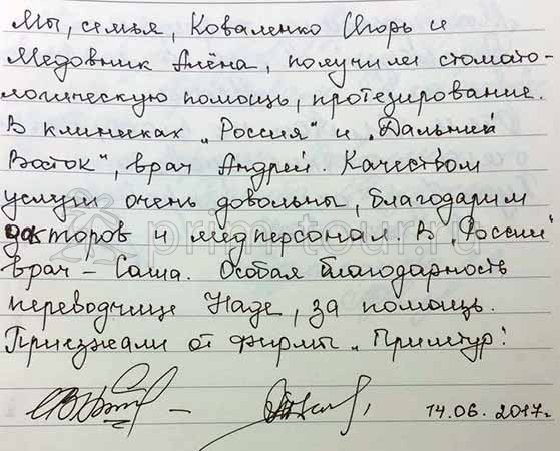 Мы, семья, Коваленко Игорь и
Медовник Алёна, получили стомато-
логическую помощь, протезирование.
В клиниках „Россия" и „Дальний
Восток", врач Андрей. Качеством
услуги очень довольны, благодарим
докторов и медперсонал. В „России"
врач – Саша. Особая благодарность
переводчице Наде, за помощь.
Приезжали от фирмы „Примтур!
14.06.2017г.
prim-tour.ru